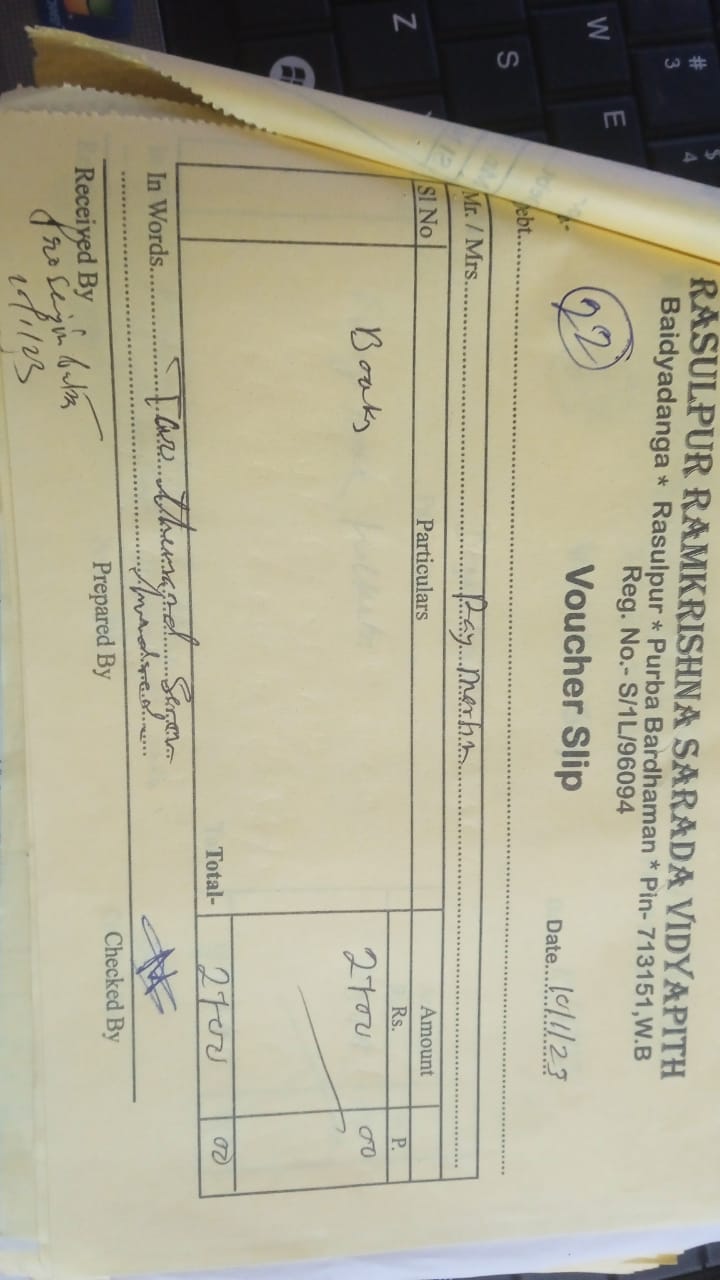 RASULPUR RAMKRISHNA SARADA VIDYAPITH
Baidyadanga * Rasulpur * Purba Bardhaman * Pin- 713151,W.B
Reg. No.- S/1L/96094
22 Voucher Slip Date....10/1/23
ebt....
Mr. / Mrs....
Sl No Particulars Amount
Rs. P.
Books 2700 00
Total- 2700 00
In Words.... Two thousand Seven
hundred
Received By Prepared By Checked By
10/1/23
# 3
$ 4
W E
S
Z